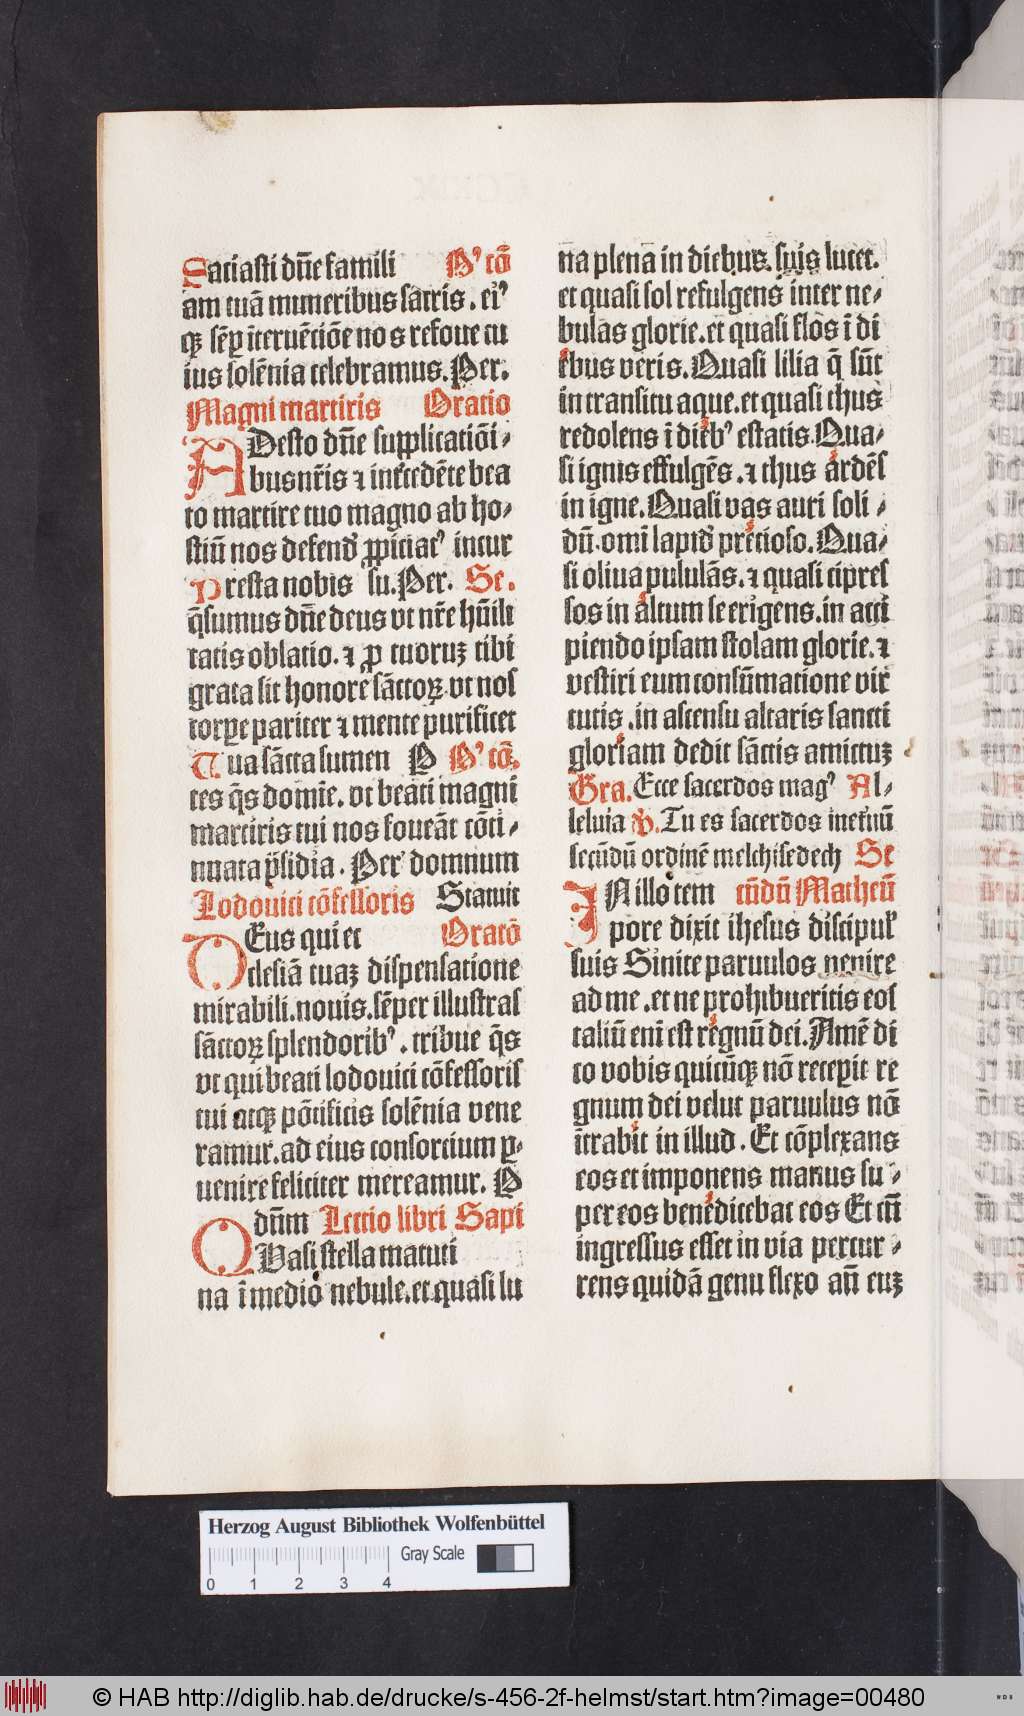 Saciasti dn̄e famili P' cō
am tuā muneribus sacris. ei'
qꝫ sēꝑ īteruētiōe nos refoue cu
ius solēnia celebramus. Per.
Magni martiris Oratio
ADesto dn̄e supplicatiōi-
bus nr̄is ⁊ intᵉcedēte bea
to martire tuo magno ab ho-
stiū nos defend' ꝓpiciat' incur
Presta nobis su. Per. Se.
q̄sumus dn̄e deus vt nr̄e hūili
tatis oblatio. ⁊ ꝓ tuoruꝫ tibi
grata sit honore sāctoꝝ. vt nos
corꝑe pariter ⁊ mente purificet
Tua sācta sumen P P' cō.
tes q̄s domīe. vt beati magni
martiris tui nos foueāt cōti-
nuata p̄sidia. Per domnum
Lodouici cōfessoris Statuit
DEus qui et Oratō
clesiā tuaꝫ dispensatione
mirabili. nouis. sēper illustras
sāctoꝝ splendorib'. tribue q̄s
vt qui beati lodouici cōfessoris
tui atqꝫ pōtificis solēnia vene
ramur. ad eius consortium ꝑ-
uenire feliciter mereamur. P
dn̄m Lectio libri Sapi
QUasi stella matuti
na ī medio nebule. et quasi lu
na plena in diebuz. suis lucet.
et quasi sol refulgens inter ne-
bulas glorie. et quasi flos ī di
ebus veris. Quasi lilia q̄ sūt
in transitu aque. et quasi thus
redolens ī dieb' estatis. Qua-
si ignis effulgēs. ⁊ thus ardēs
in igne. Quasi vas auri soli-
dū. omī lapid' precioso. Qua-
si oliua pululās. ⁊ quasi cipres
sos in altum se erigens. in acci
piendo ipsam stolam glorie. ⁊
vestiri eum consūmatione vir
tutis. in ascensu altaris sancti
gloriam dedit sāctis amictuꝫ
Gra. Ecce sacerdos mag' Al-
leluia V. Tu es sacerdos ineternū
secūdū ordinē melchisedech Se
IN illo tem cūdū Matheū
pore dixit ihesus discipul'
suis Sinite paruulos uenire
ad me. et ne prohibueritis eos
taliū enī est regnū dei. Amē di
co vobis quicūqꝫ nō receꝑit re
gnum dei velut paruulus nō
ītrabit in illud. Et cōplexans
eos et imponens manus su-
per eos benedicebat eos Et cū
ingressus esset in via percur-
rens quidā genu flexo an̄ euꝫ
Herzog August Bibliothek Wolfenbüttel
Gray Scale
0 1 2 3 4
© HAB http://diglib.hab.de/drucke/s-456-2f-helmst/start.htm?image=00480